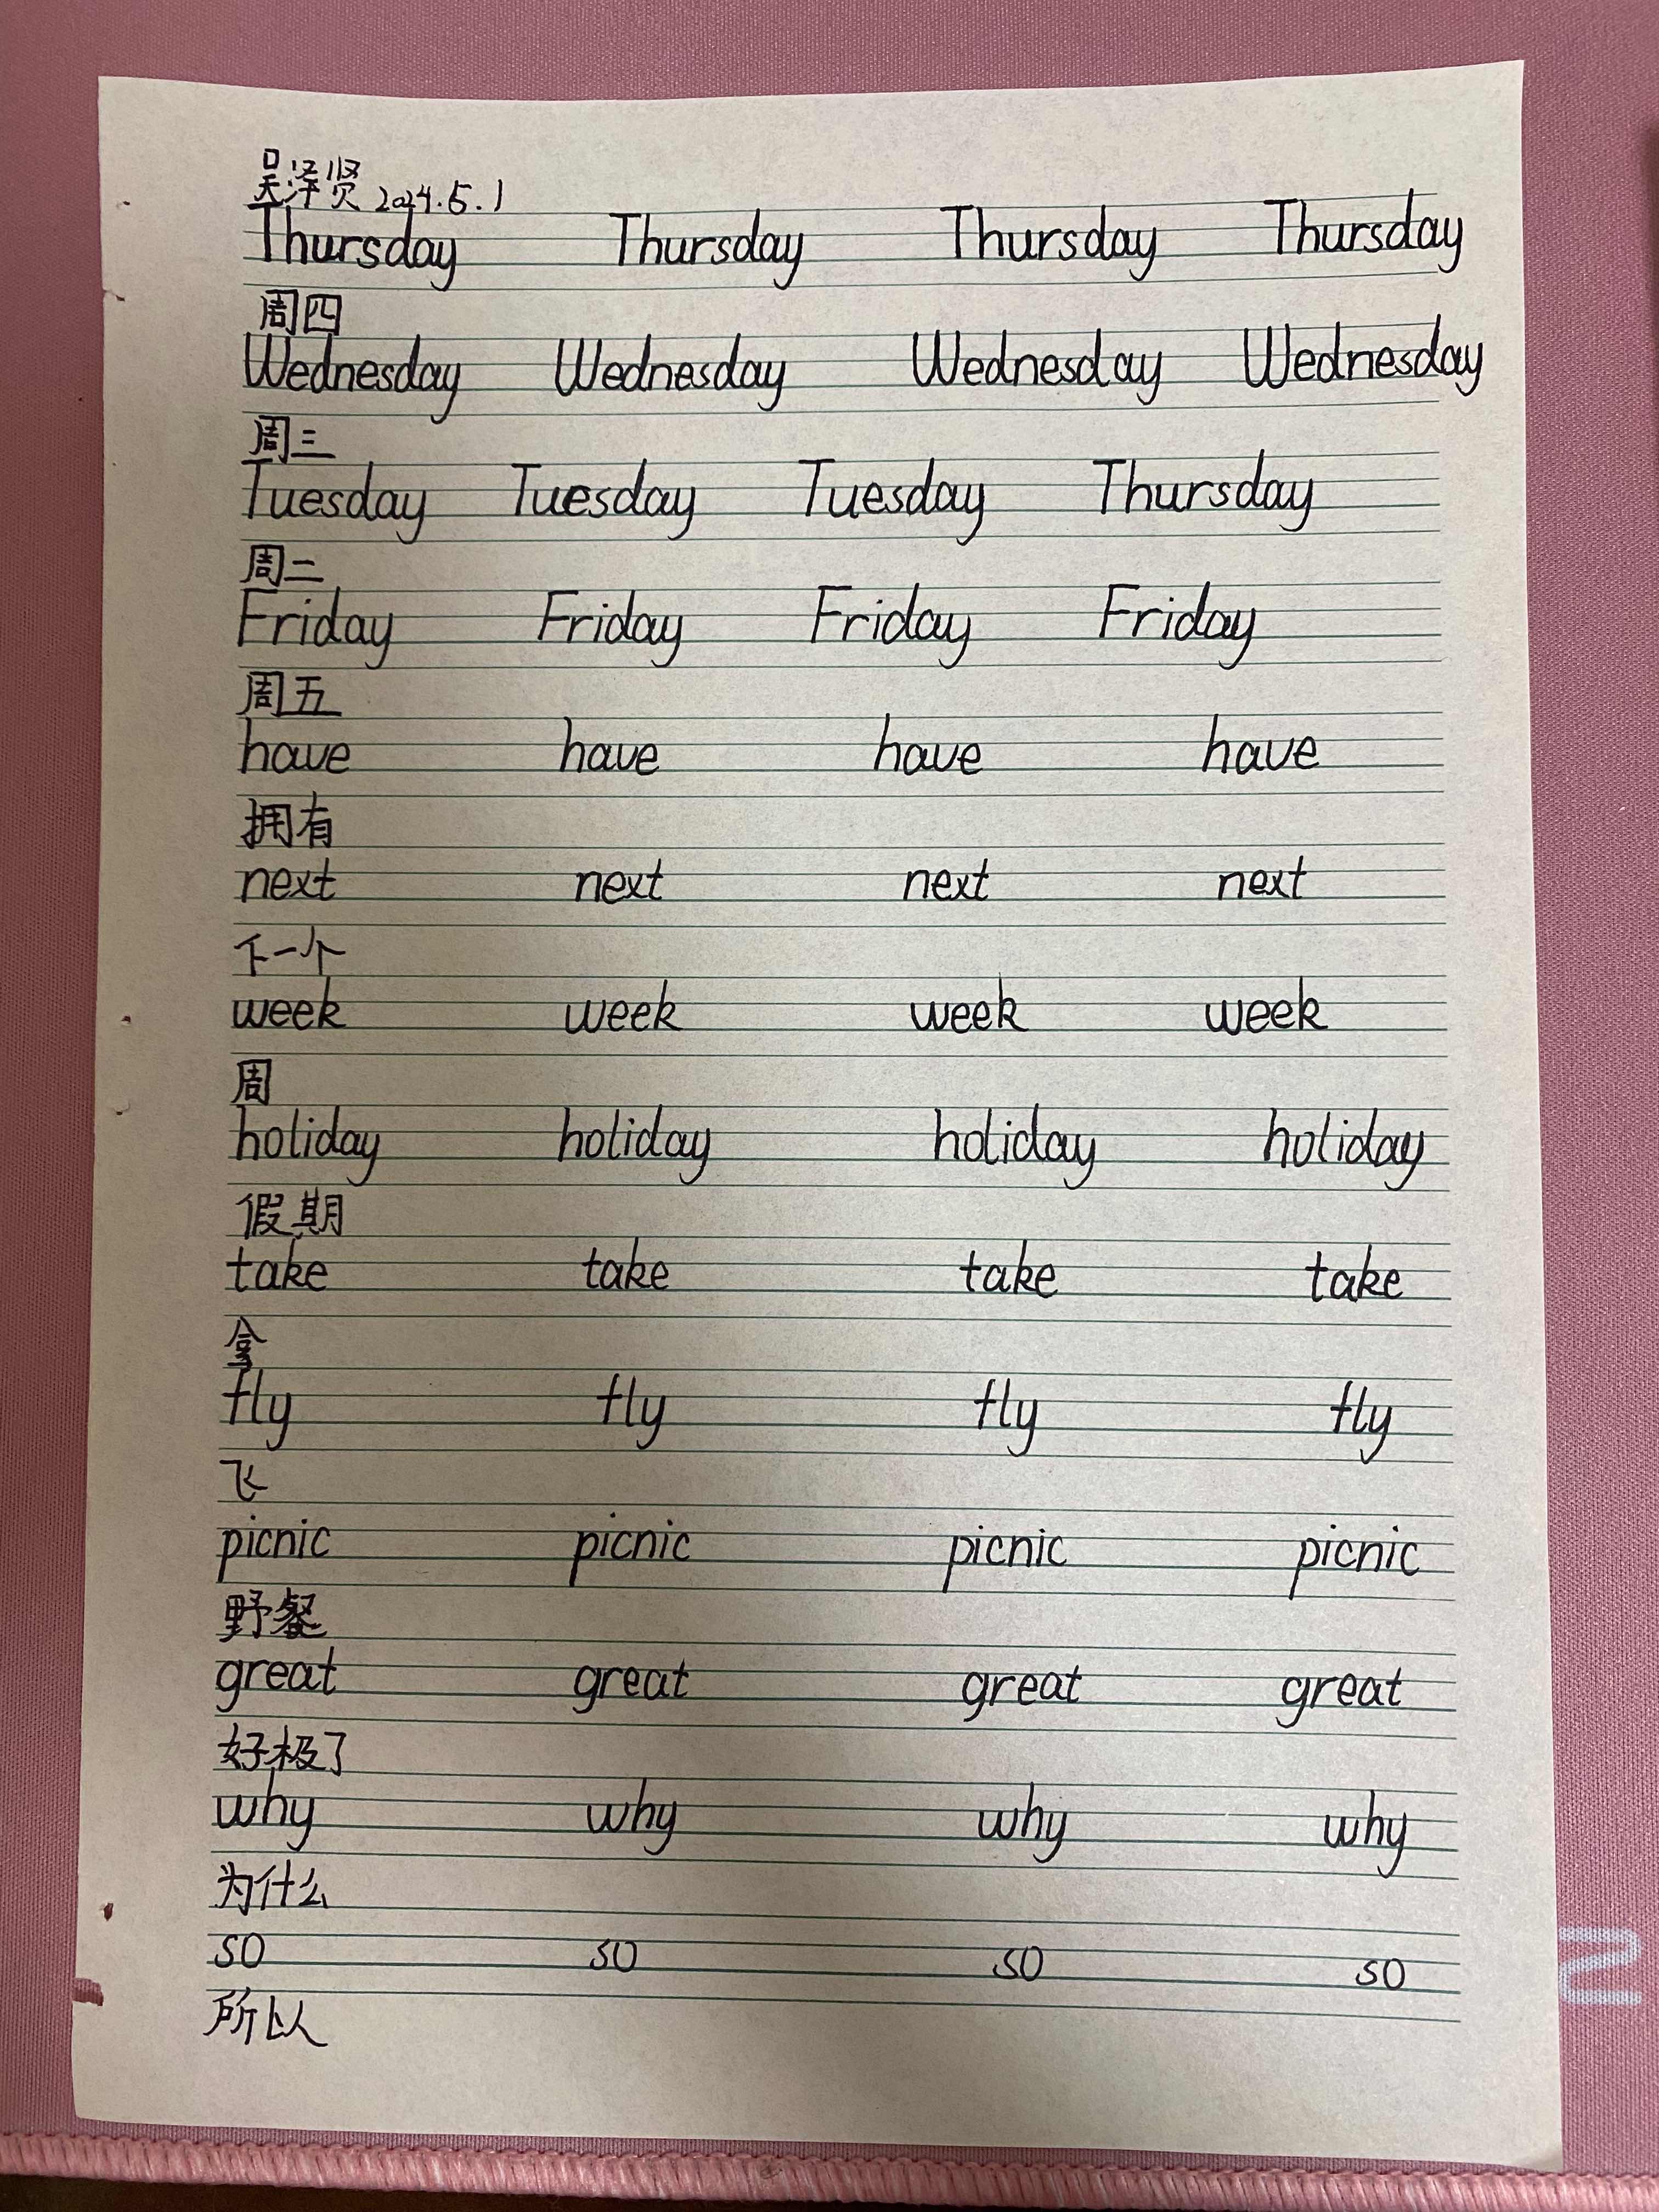 吴泽贤 2024.5.1
Thursday Thursday Thursday Thursday
周四
Wednesday Wednesday Wednesday Wednesday
周三
Tuesday Tuesday Tuesday Thursday
周二
Friday Friday Friday Friday
周五
have have have have
拥有
next next next next
下一个
week week week week
周
holiday holiday holiday holiday
假期
take take take take
拿
fly fly fly fly
飞
picnic picnic picnic picnic
野餐
great great great great
好极了
why why why why
为什么
so so so so
所以